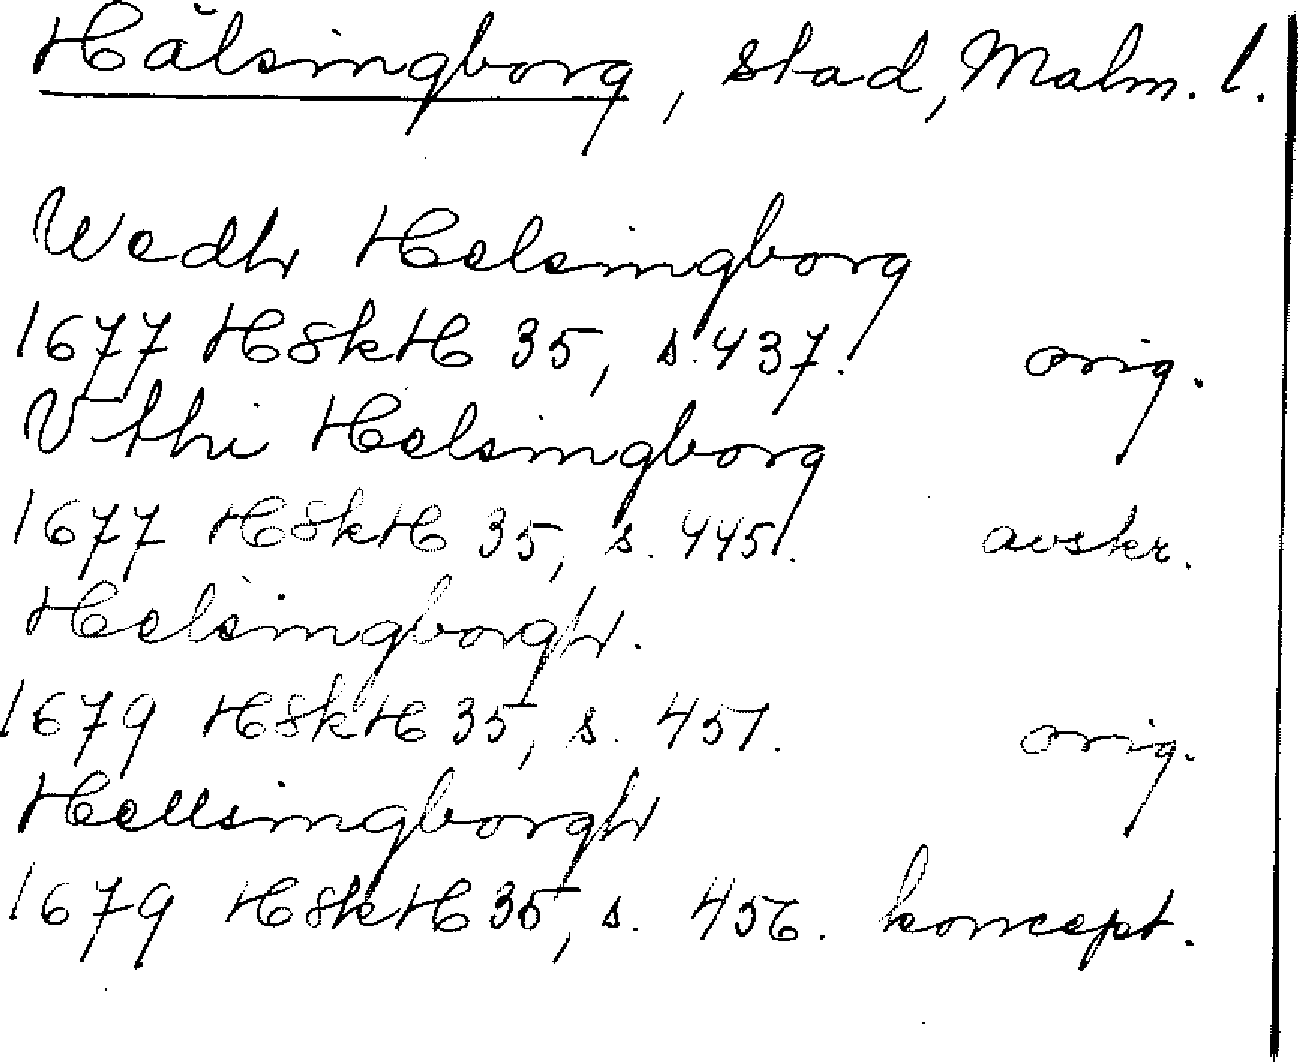 Hälsingborg, stad, Malm. l.
Wedh Helsingborg
1677 HSkH 35, s. 437. orig.
Vthi Helsingborg
1677 HSkH 35, s. 445. avskr.
Helsingborgh.
1679 HSkH 35, s. 451. orig.
Hellsingborgh
1679 HSkH 35, s. 456. koncept.